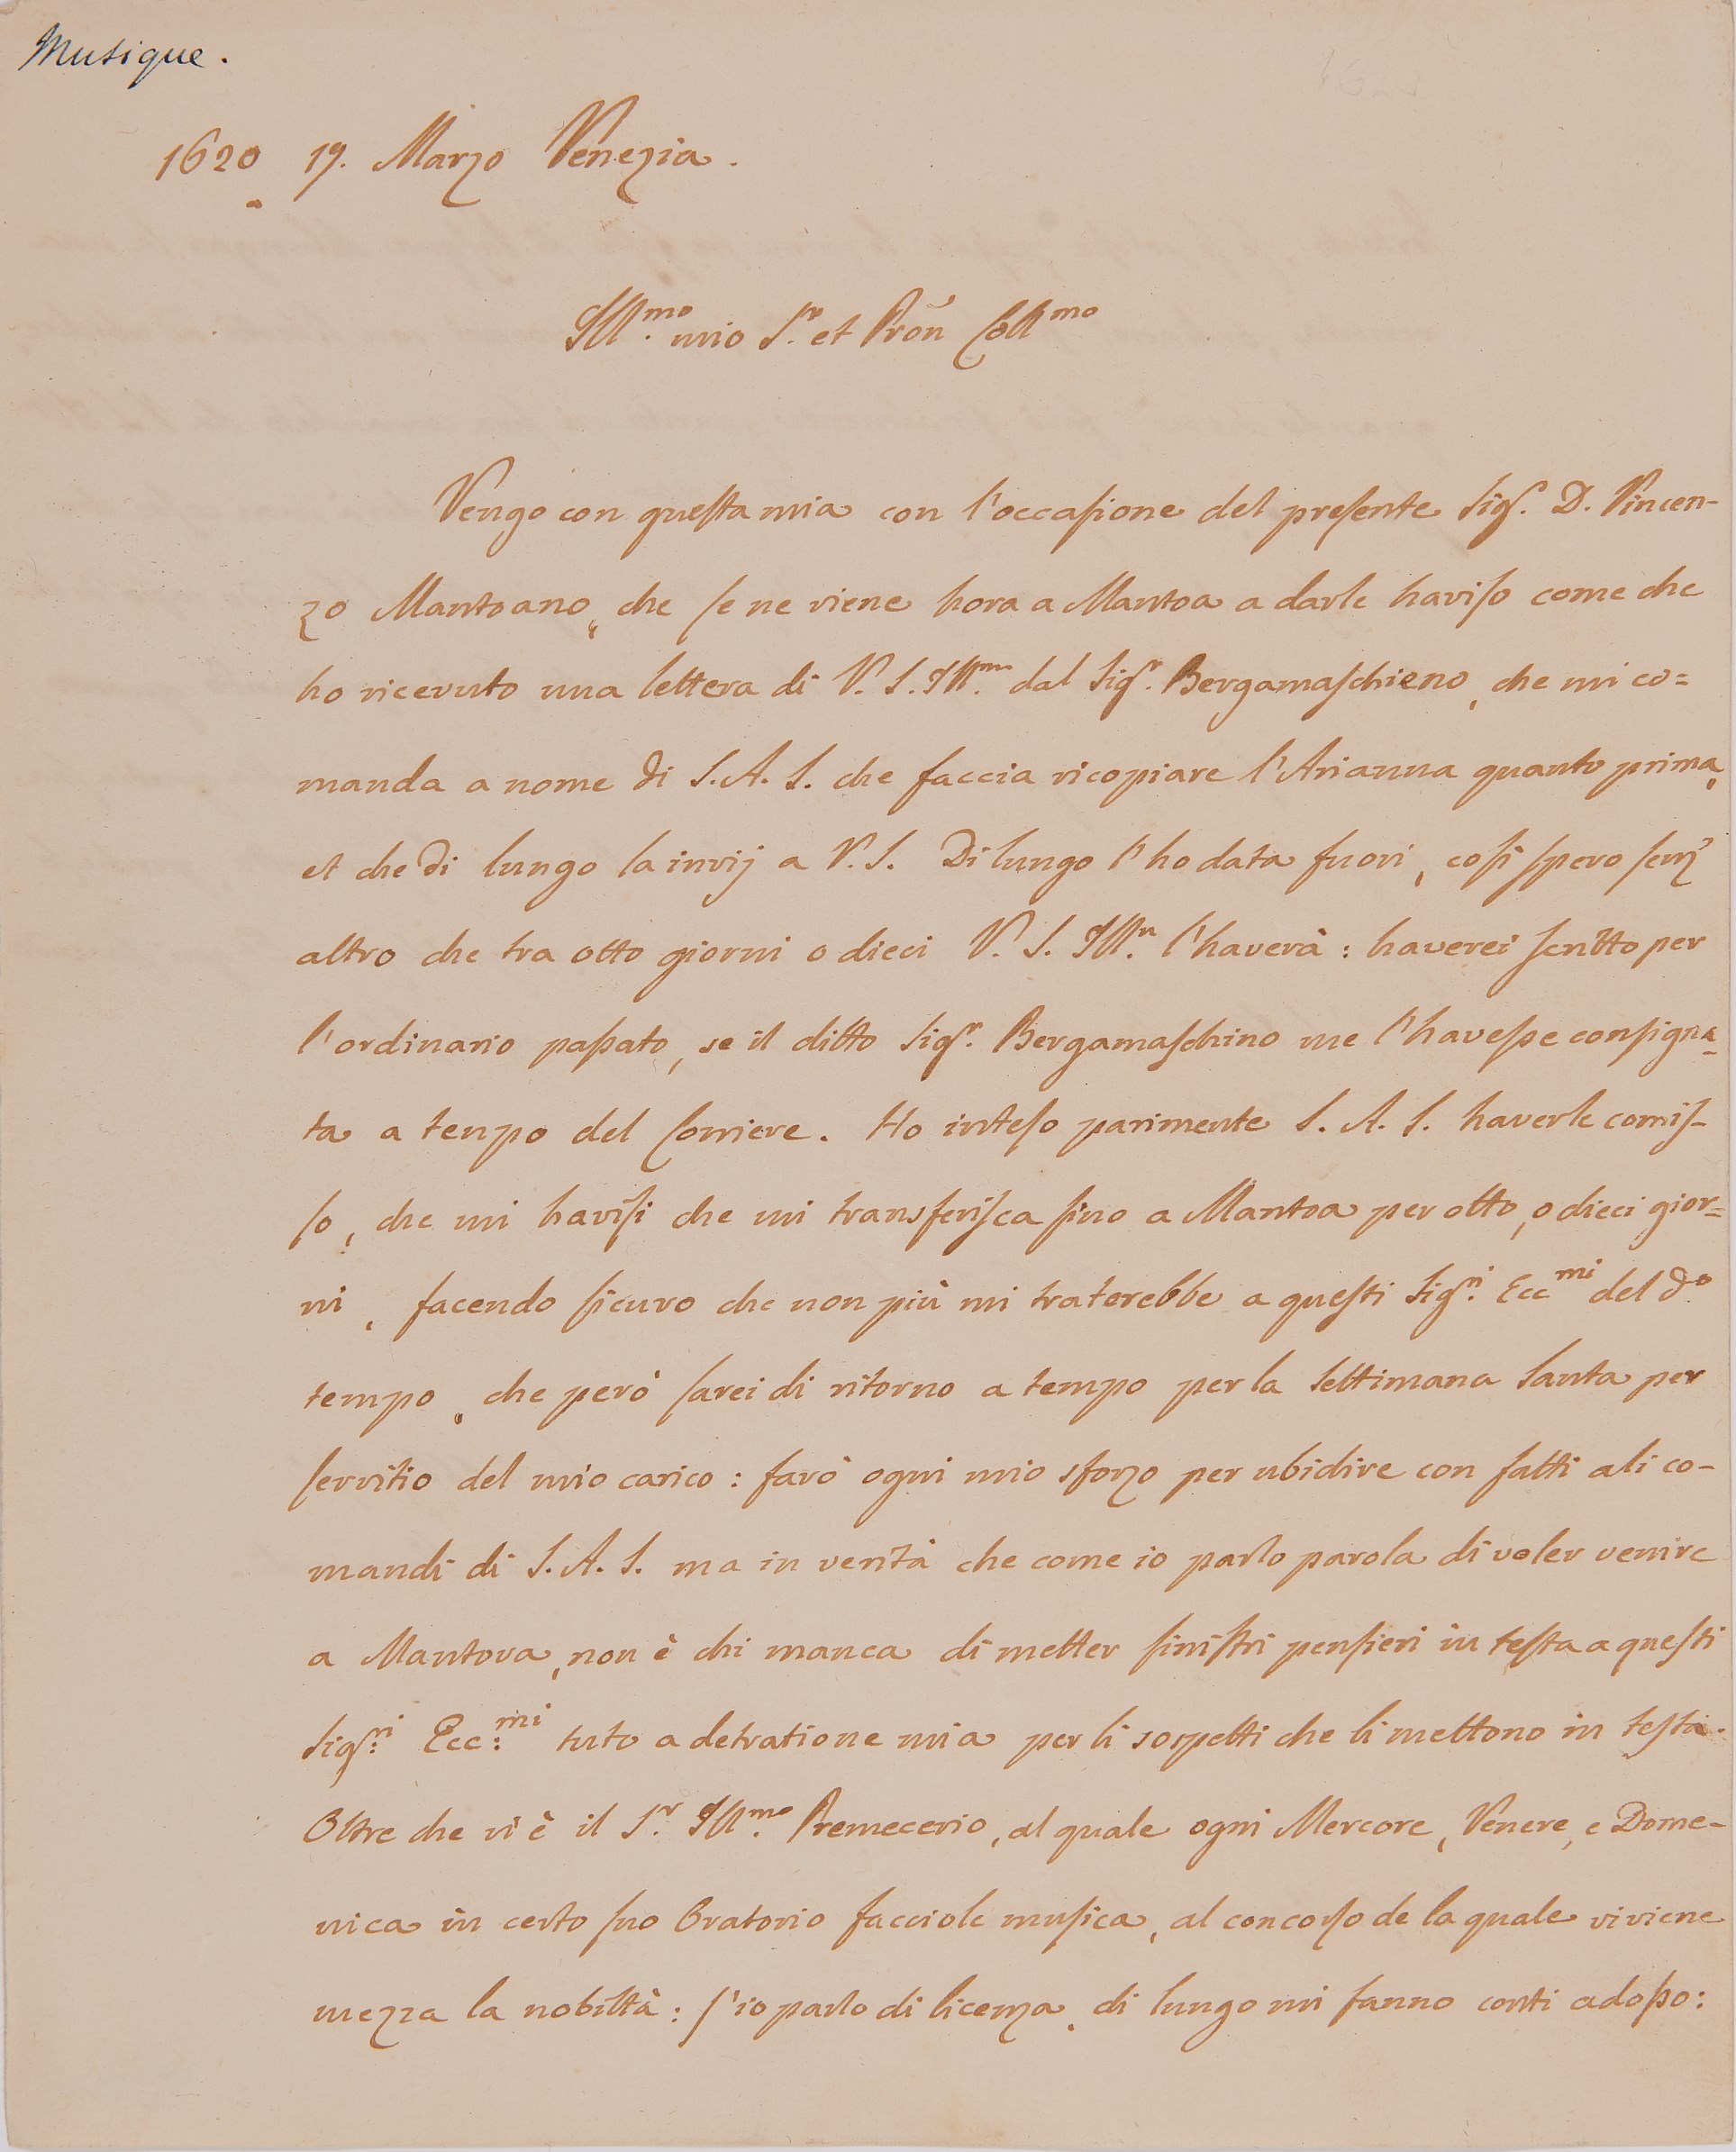 Musique.
1620 19. Marzo Venezia.
Ill.mo mio S.r et Pron Coll.mo
Vengo con questa mia con l'occasione del presente Sig.r D. Vincen-
zo Mantoano, che se ne viene hora a Mantoa a darle haviso come che
ho ricevuto una lettera di V. S. Ill.ma dal Sig.r Bergamaschieno, che mi co=
manda a nome di S. A. S. che faccia ricopiare l'Arianna quanto prima,
et che di lungo la invij a V. S. Di lungo l'ho data fuori, così spero senz'
altro che tra otto giorni o dieci V. S. Ill.a l'haverà: haverei scritto per
l'ordinario passato, se il ditto Sig.r Bergamaschino me l'havesse consigna-
ta a tenpo del Corriere. Ho inteso parimente S. A. S. haverle comis-
so, che mi havisi che mi transferisca sino a Mantoa per otto, o dieci gior=
ni, facendo sicuro che non più mi traterebbe a questi Sig.ri Ecc.mi del d.o
tempo, che però sarei di ritorno a tempo per la Settimana Santa per
servitio del mio carico: farò ogni mio sforzo per ubidire con fatti ali co-
mandi di S. A. S. ma in verità che come io parlo parola di voler venire
a Mantova, non è chi manca di metter sinistri pensieri in testa a questi
Sig.ri Ecc.mi tuto a detratione mia per li sospetti che li mettono in testa.
Oltre che vi è il S.r Ill.mo Premecerio, al quale ogni Mercore, Venere, e Dome-
nica in certo suo Oratorio facciole musica, al concorso de la quale vi viene
mezza la nobiltà: s'io parlo di licenza, di lungo mi fanno conti adosso: